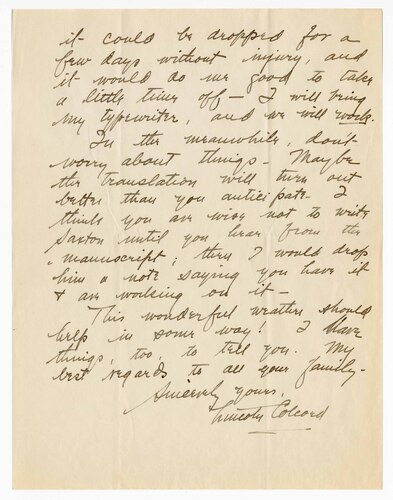 it could be dropped for a
few days without injury, and
it would do me good to take
a little time off — I will bring
my typewriter, and we will work.
In the meanwhile, don't
worry about things — Maybe
the translation will turn out
better than you anticipate. I
think you are wise not to write
Saxton until you hear from the
manuscript; then I would drop
him a note saying you have it
& are working on it —
This wonderful weather should
help in some way! I have
things, too, to tell you. My
best regards to all your family —
Sincerely yours,
Lincoln Colcord